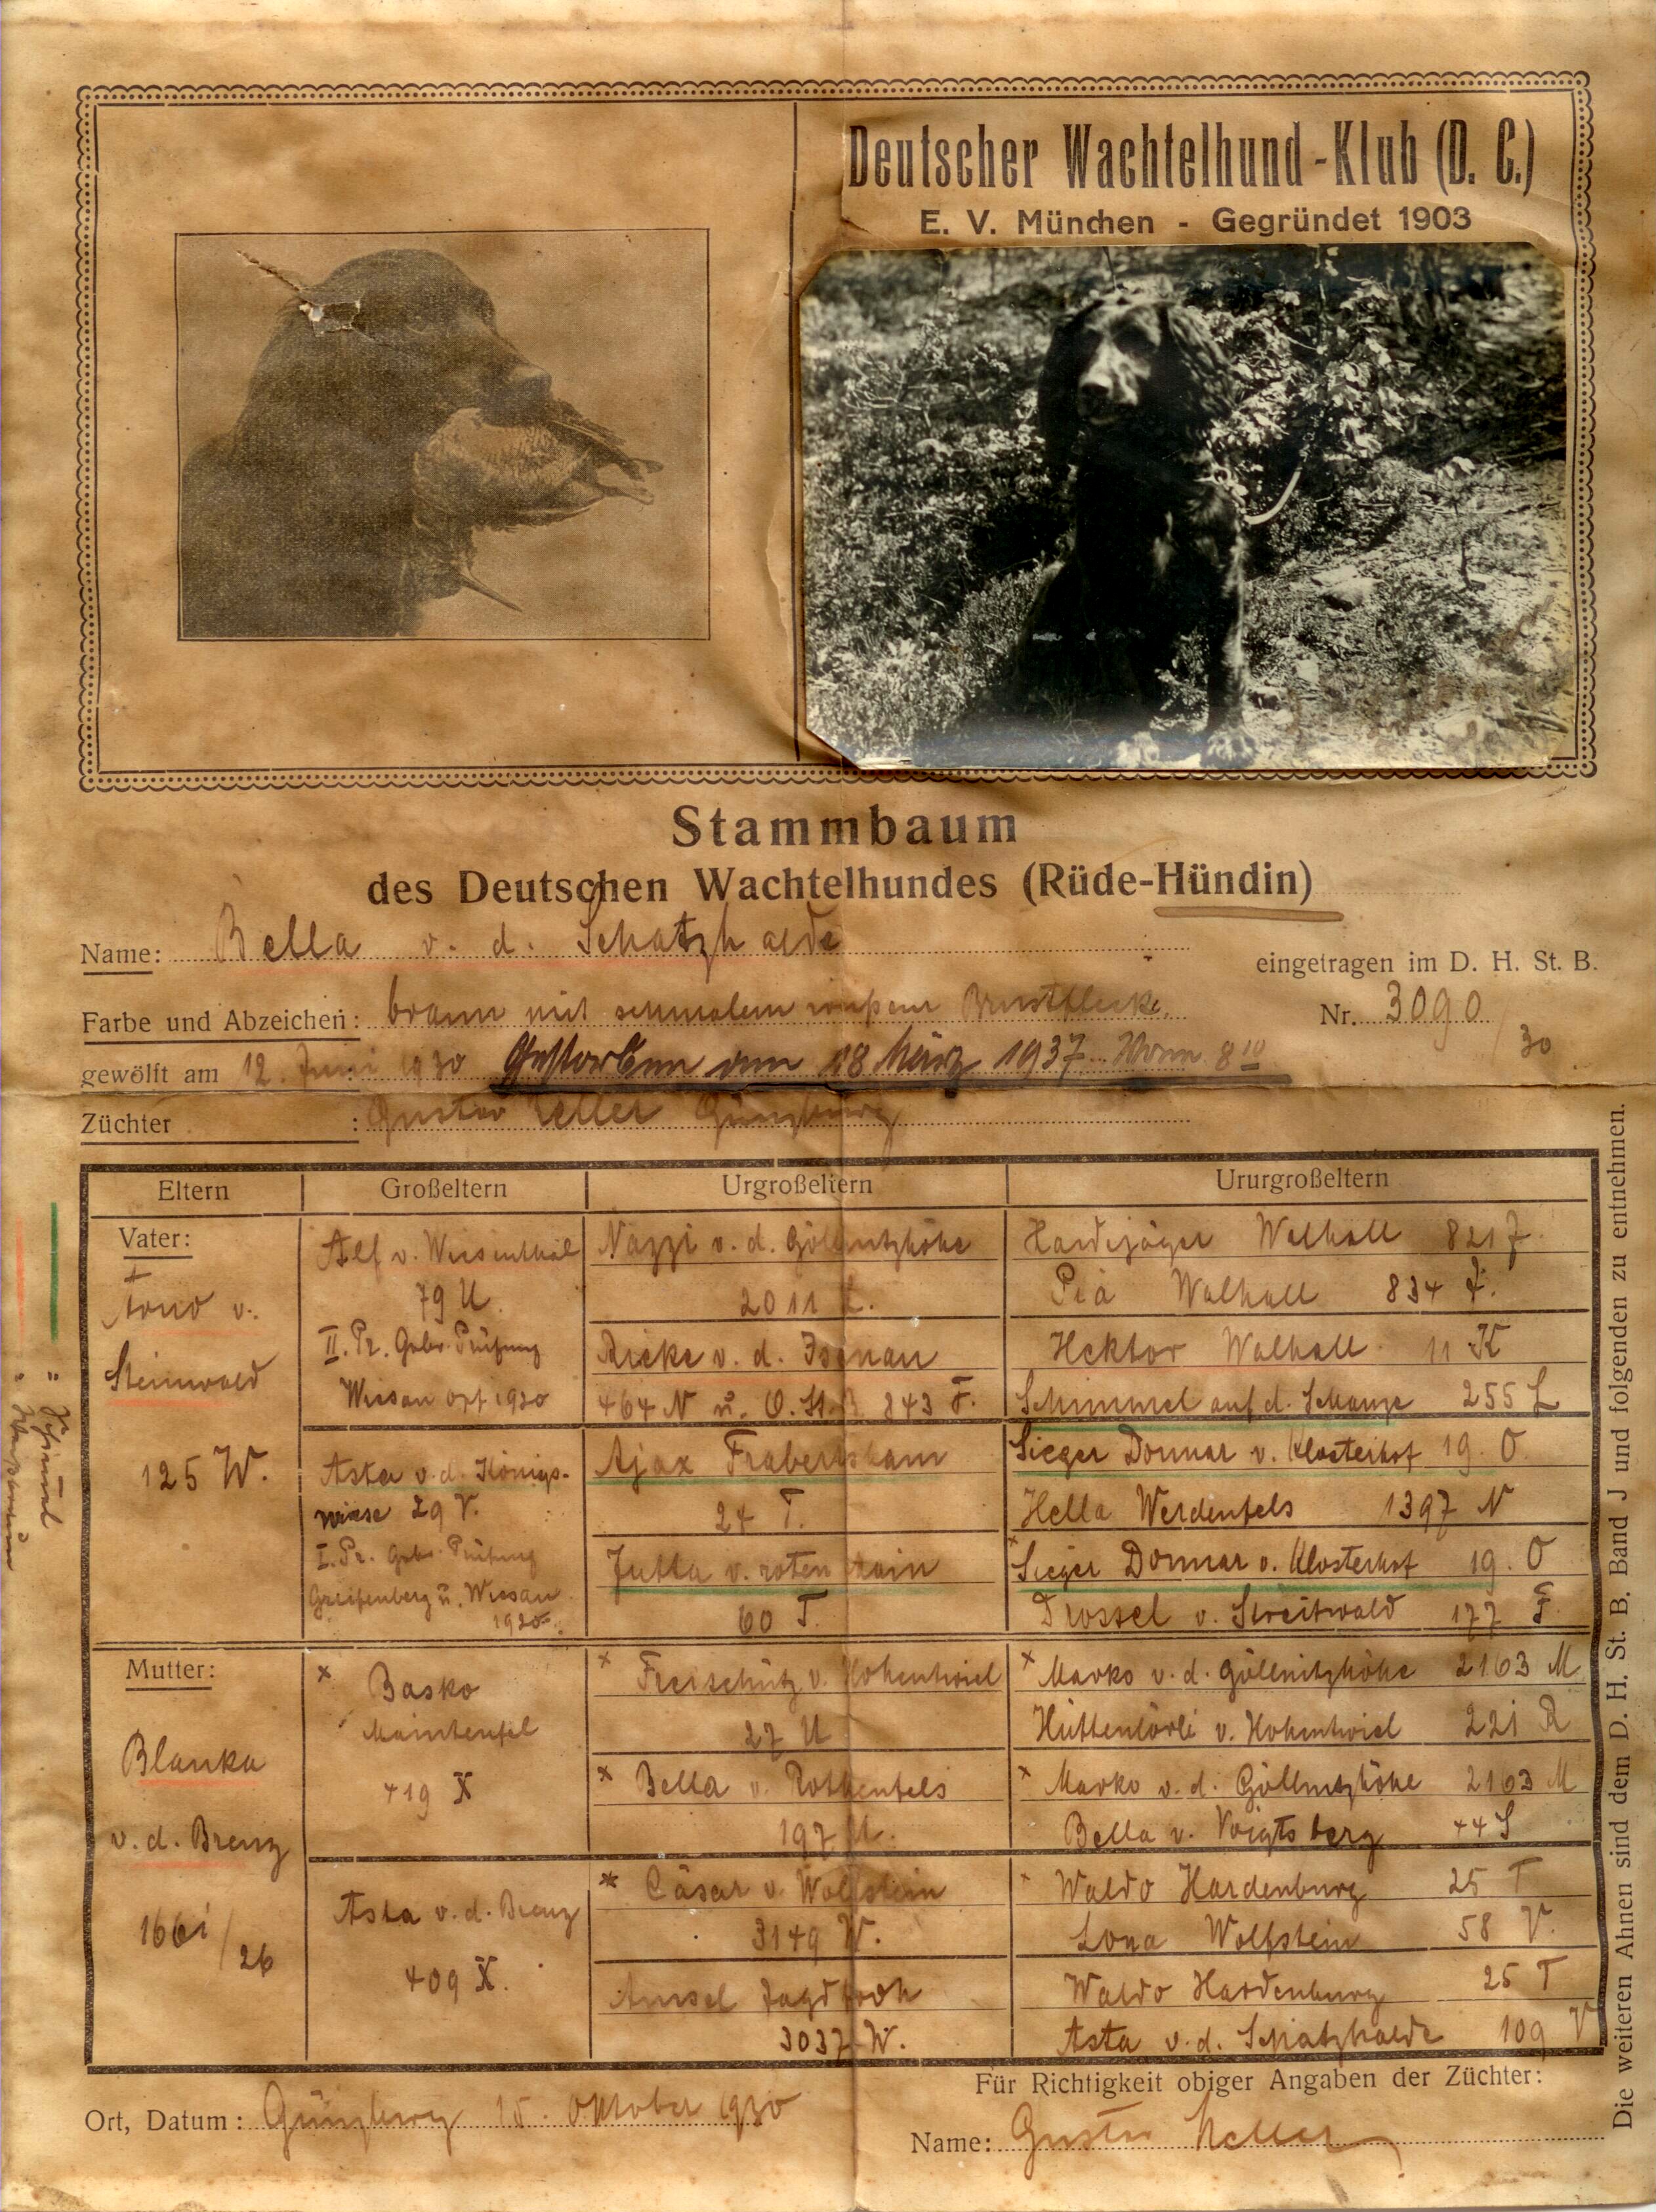 Deutscher Wachtelhund-Klub (D. C.)
E. V. München - Gegründet 1903
Stammbaum
des Deutschen Wachtelhundes (Rüde-Hündin)
Name: Bella v. d. Schatzhalde
eingetragen im D. H. St. B.
Farbe und Abzeichen: braun mit schmalem weißem Brustflecke.
Nr. 3090/30
gewölft am 12. Juni 1930 Gestorben am 18 März 1937
Züchter: Gustav Keller Günzburg
Eltern Großeltern Urgroßeltern Ururgroßeltern
Vater:
Arno v.
Steinwald
125 W.
Alf v. Wiesenthal
79 U.
II. Pr. Gebr. Prüfung
Wiesau Opf 1920
Asta v. d. Königs-
wiese 29 V.
I. Pr. Gebr. Prüfung
Greifenberg u. Wiesau
Nazzi v. d. Göllnitzhöhe
2011 L.
Rieke v. d. Isenau
464 N u. O. St. B. 843 F.
Ajax Frabertsham
24 T.
Jutta v. roten Rain
60 T.
Hardijäger Walhall 821 J.
Pia Walhall 834 J.
Hektor Walhall 11 K
Schimmel auf d. Schanze 255 L
Sieger Donnar v. Klosterhof 19. O
Hella Werdenfels 1397 N
Sieger Donnar v. Klosterhof 19. O
Drossel v. Streitwald 177
Mutter:
Blanka
v. d. Brenz
166i/26
Basko
Mainteufel
419 X
Asta v. d. Brenz
409 X.
Freischütz v. Hohentwiel
27 U
Bella v. Rothenfels
197 U.
Cäsar v. Wolfstein
3149 W.
Amsel Jagdfroh
3037 W.
Marko v. d. Göllnitzhöhe 2163 M
Hüttenlörli v. Hohentwiel 221 R
Marko v. d. Göllnitzhöhe 2163 M
Bella v. Voigtsberg 44 S
Waldo Hardenburg 25 T
Lona Wolfstein 58 V.
Waldo Hardenburg 25 T
Asta v. d. Schatzhalde 109 V
Für Richtigkeit obiger Angaben der Züchter:
Ort, Datum: Günzburg 15. Oktober 1930
Name: Gustav Keller
Die weiteren Ahnen sind dem D. H. St. B. Band J und folgenden zu entnehmen.